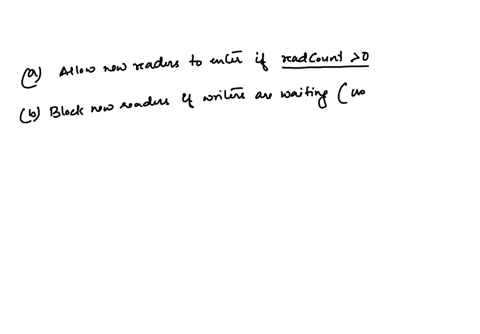 (a) Allow new readers to enter if readcount >0
(b) Block new readers if writers are waiting (